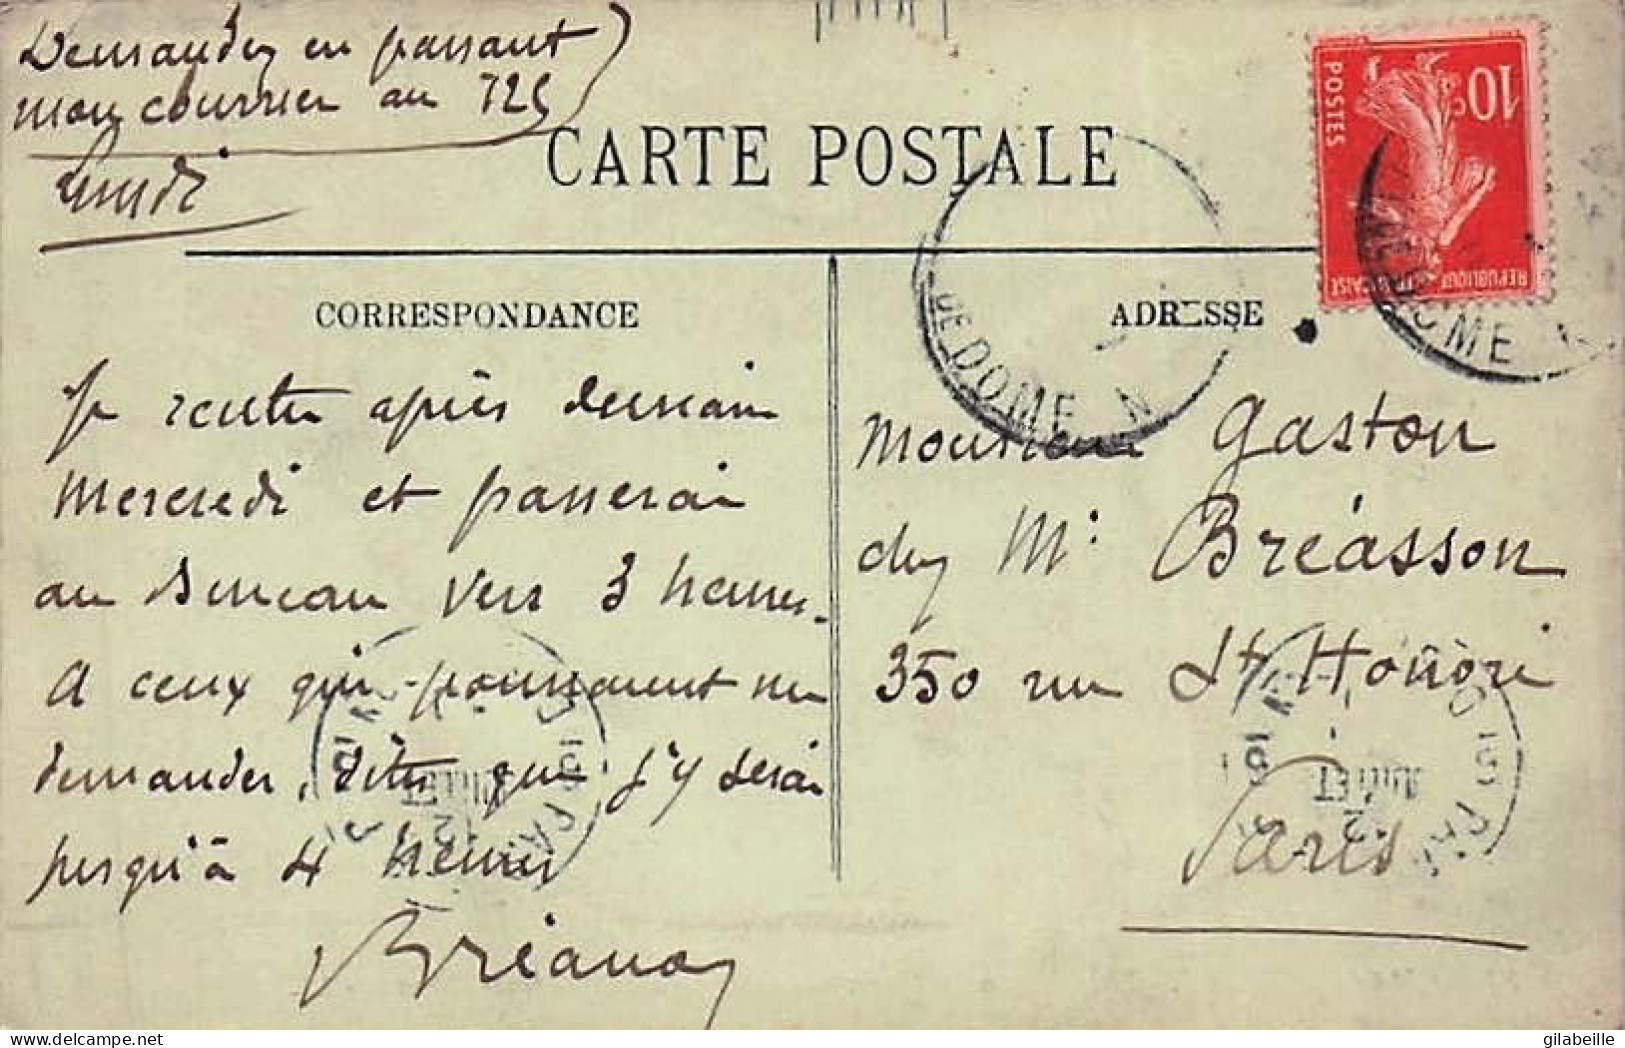 Demandez en passant
mon courrier au 725
Lundi
CARTE POSTALE
CORRESPONDANCE
ADRESSE
10c
POSTES
REPUBLIQUE FRANÇAISE
DE DOME
DOME
Je rentre après demain
Mercredi et passerai
au Bureau vers 3 heures.
A ceux qui pourraient me
demander, dites que j'y serai
jusqu'à 4 heures
Monsieur Gaston
chez Mr: Bréasson
350 rue St Honoré
Paris
JUILLET
JUILLET
gilabeille